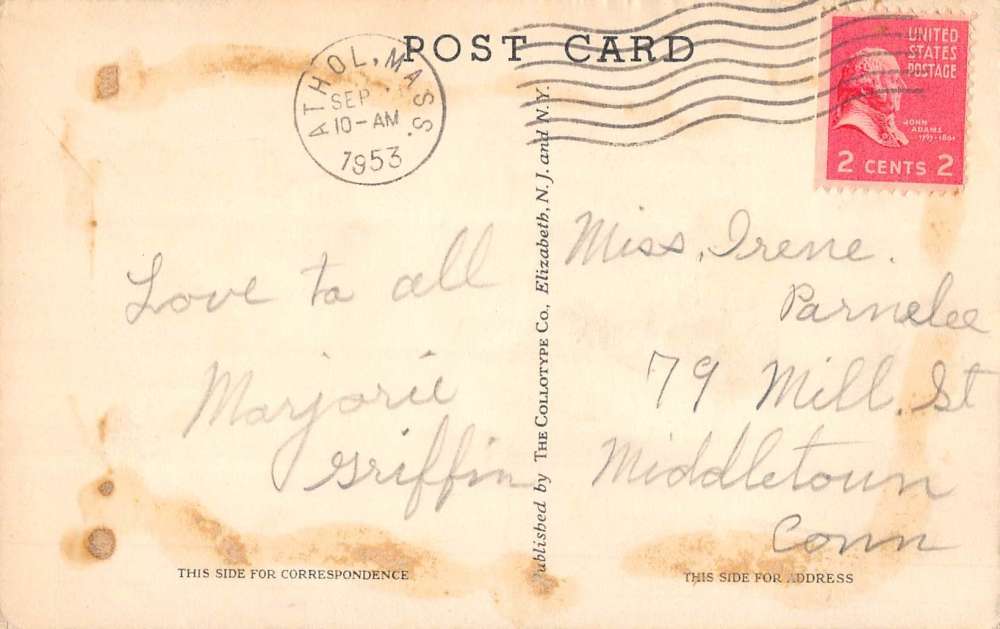 POST CARD
ATHOL, MASS.
SEP
10-AM
1953
UNITED
STATES
POSTAGE
JOHN
ADAMS
1797-1801
2 CENTS 2
Love to all
Marjorie
Griffin
Published by THE COLLOTYPE CO., Elizabeth, N. J. and N.Y.
Miss, Irene.
Parnelee
79 Mill. St
Middletown
Conn
THIS SIDE FOR CORRESPONDENCE
THIS SIDE FOR ADDRESS